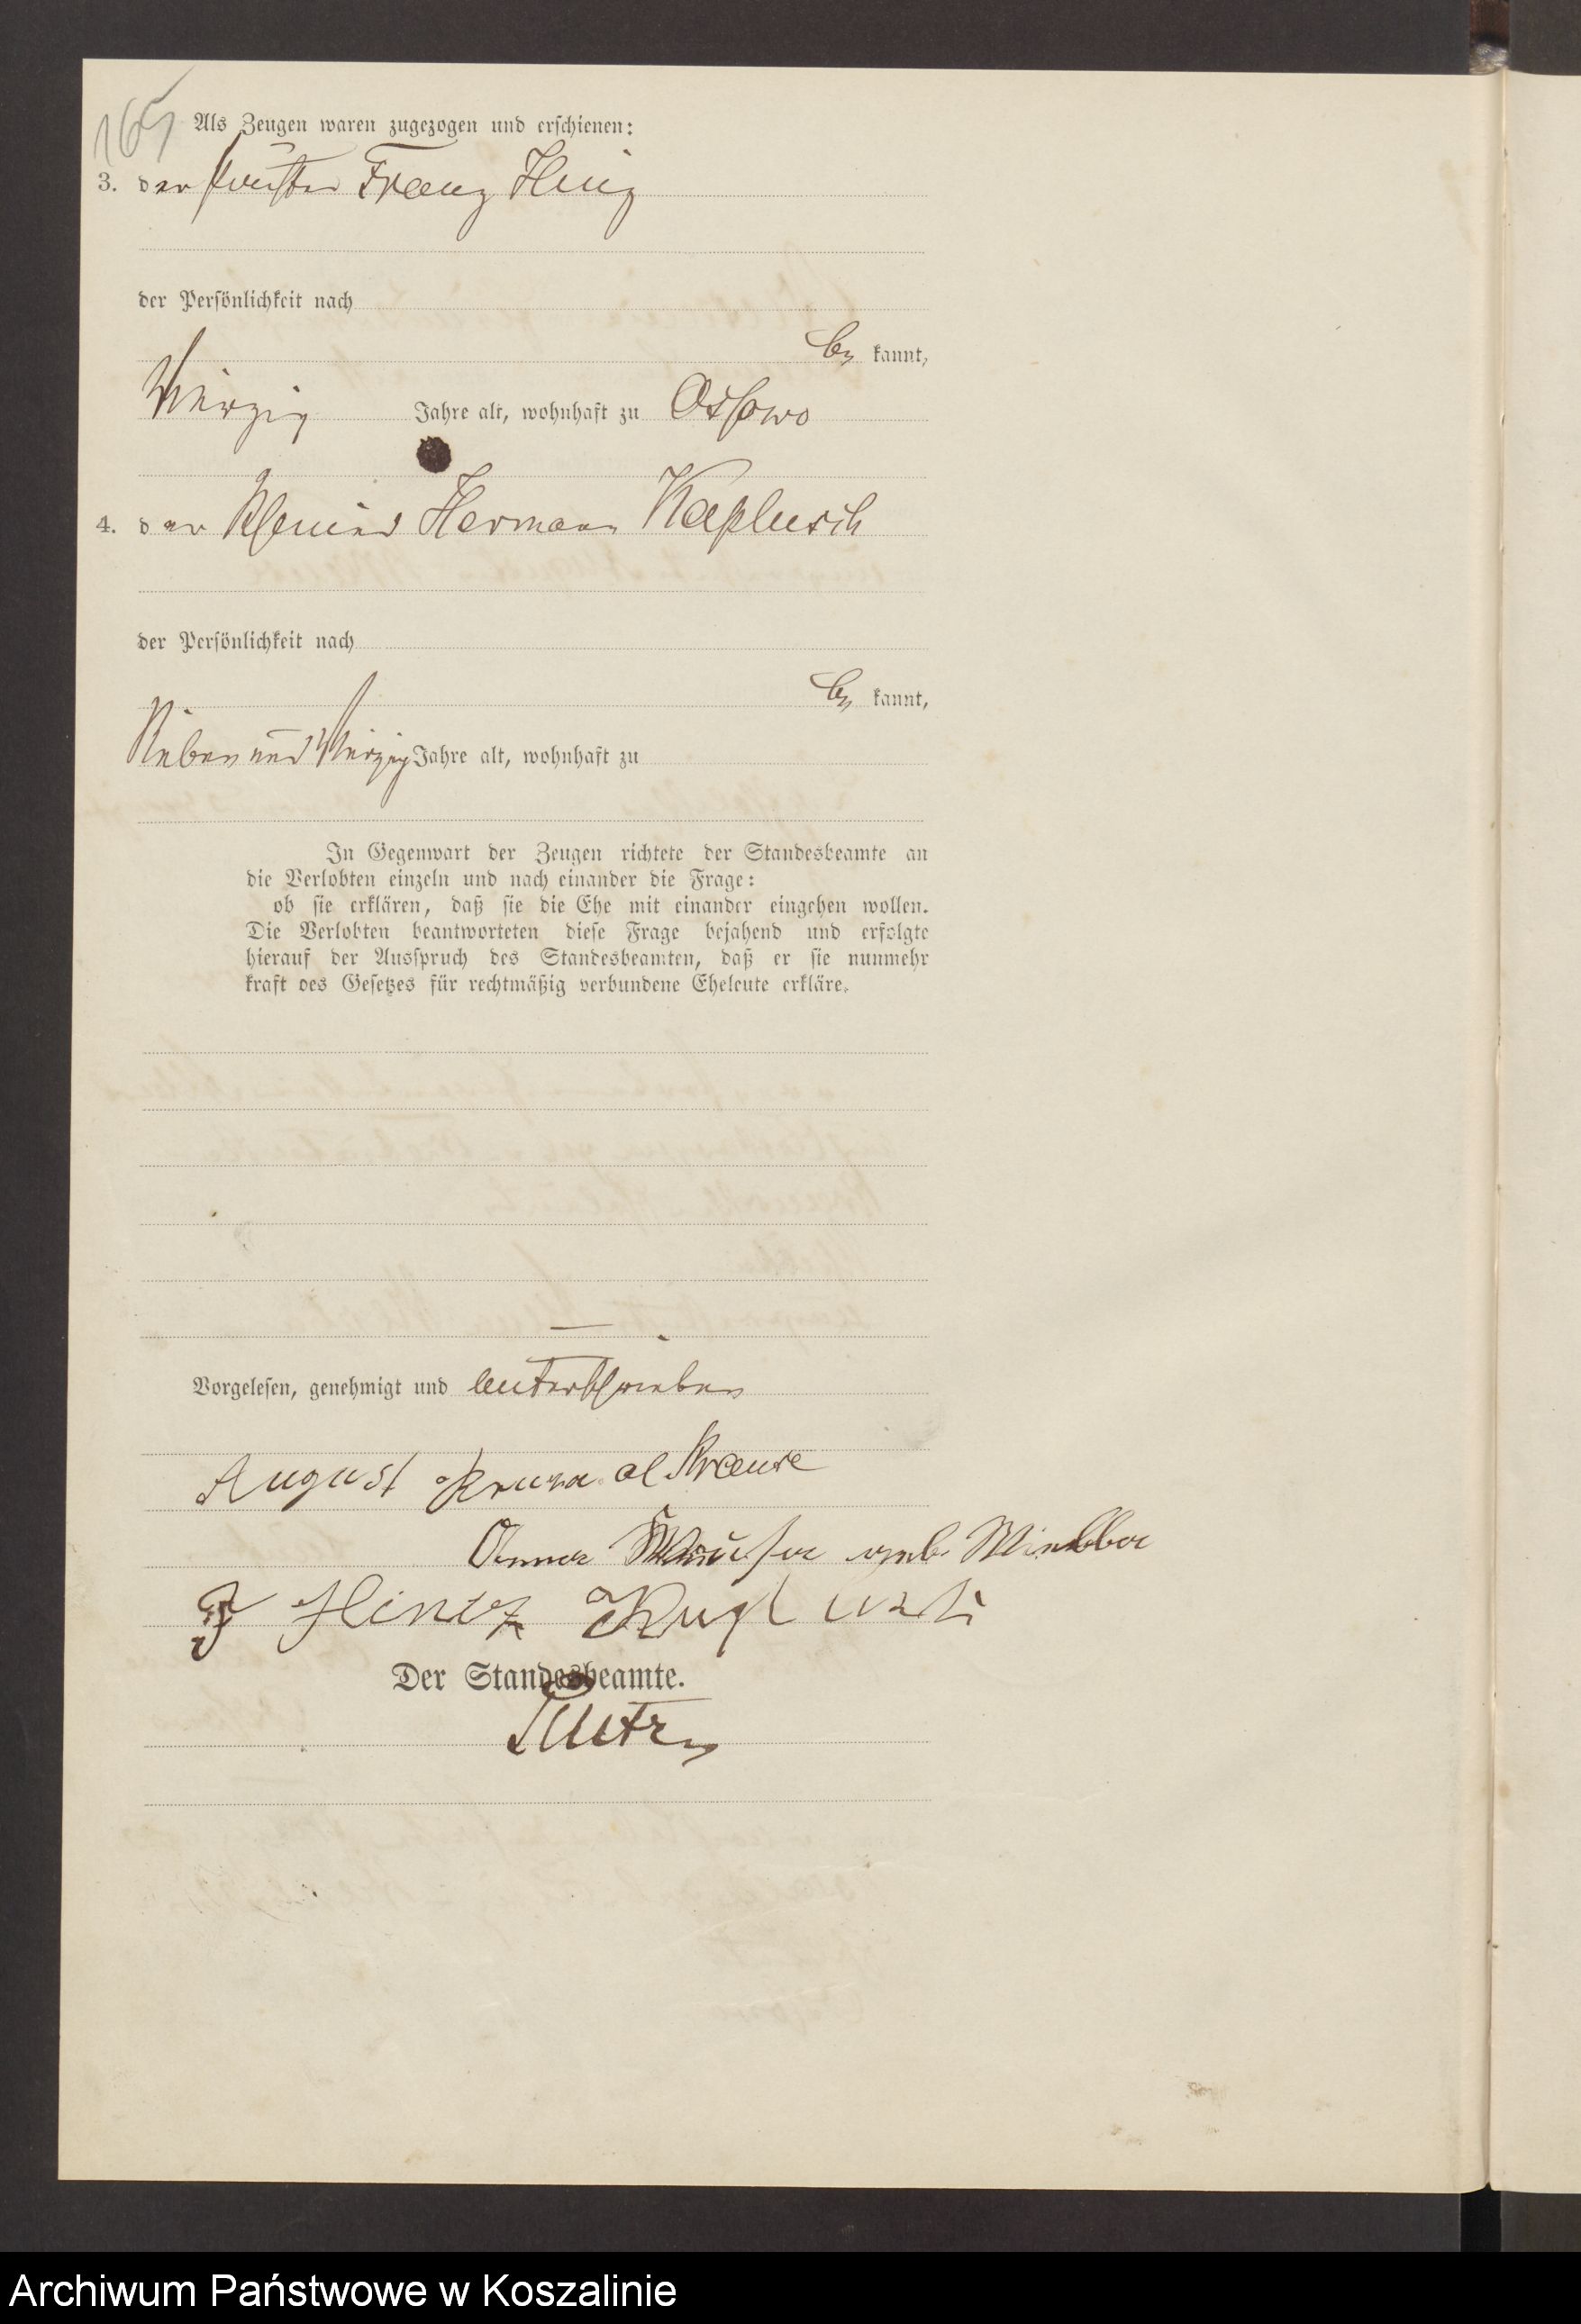 Als Zeugen waren zugezogen und erschienen:
3. der Franz Hinz
der Persönlichkeit nach
be kannt,
vierzig Jahre alt, wohnhaft zu Ossowo
4. der Hermann Kaplusch
der Persönlichkeit nach
be kannt,
Sieben und vierzig Jahre alt, wohnhaft zu
In Gegenwart der Zeugen richtete der Standesbeamte an
die Verlobten einzeln und nach einander die Frage:
ob sie erklären, daß sie die Ehe mit einander eingehen wollen.
Die Verlobten beantworteten diese Frage bejahend und erfolgte
hierauf der Ausspruch des Standesbeamten, daß er sie nunmehr
kraft des Gesetzes für rechtmäßig verbundene Eheleute erkläre.
Vorgelesen, genehmigt und unterschrieben
August al Krause
Anna
F Hintz
Der Standesbeamte.
Archiwum Państwowe w Koszalinie